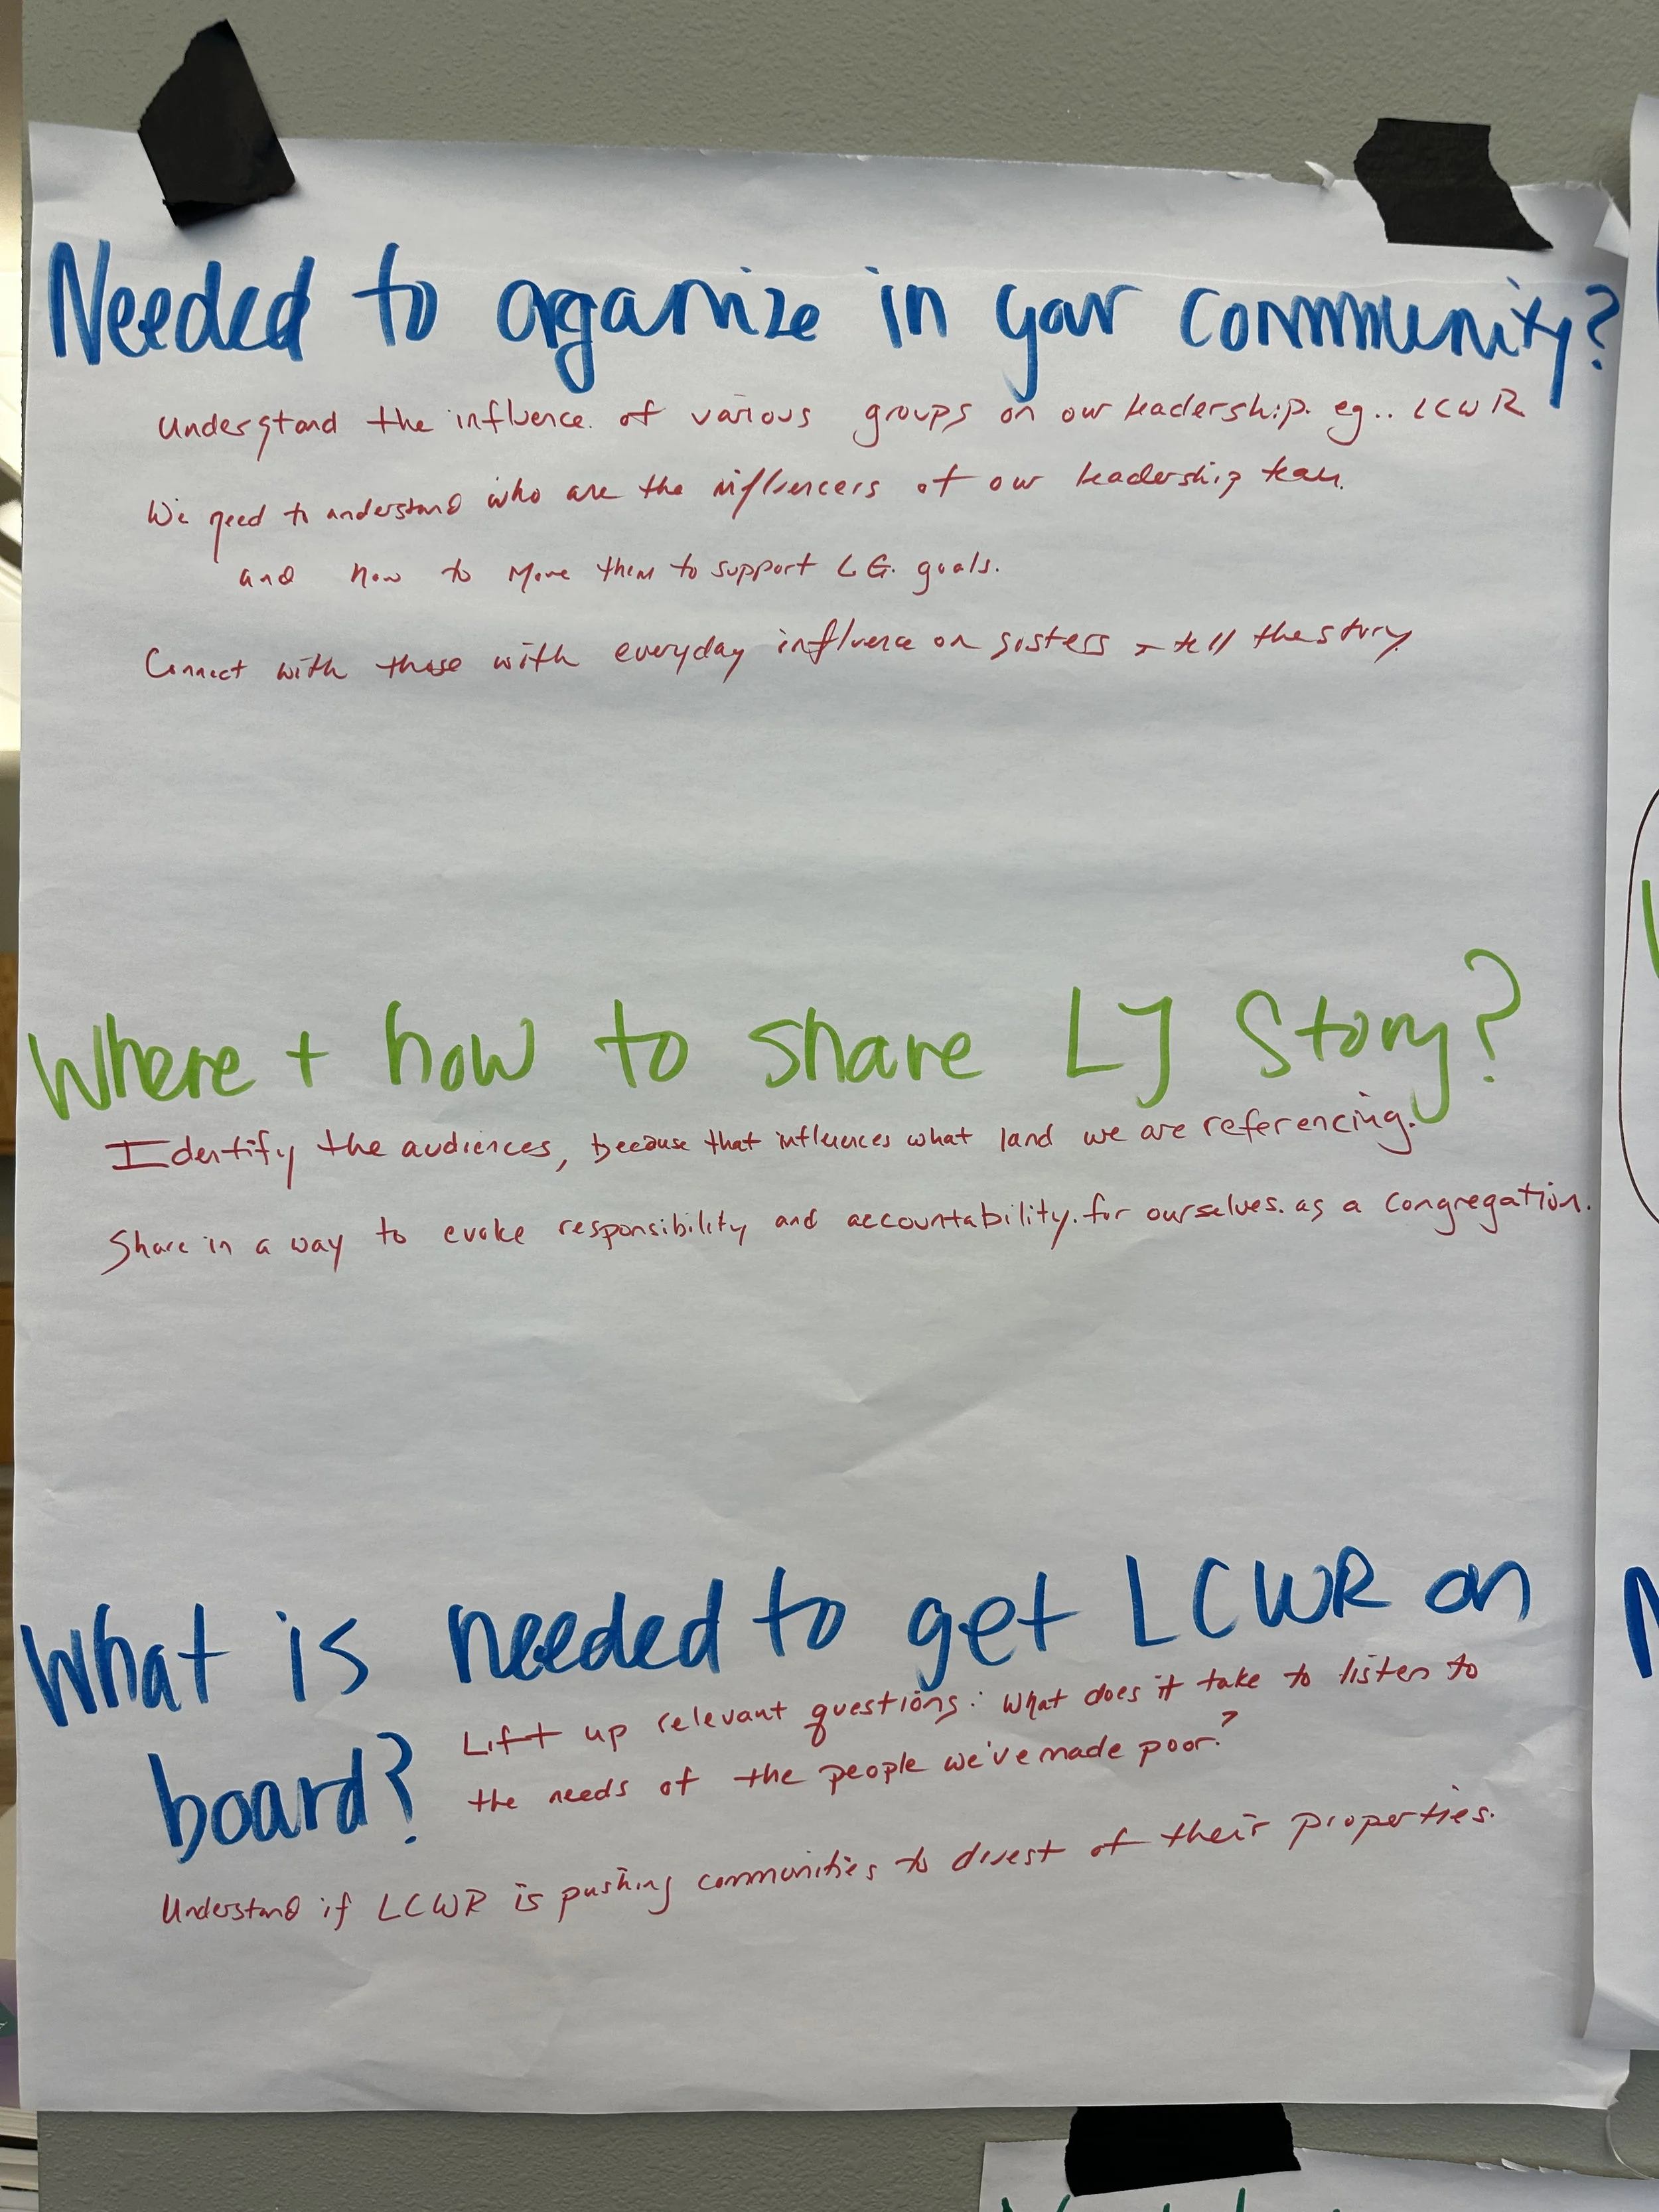 Needed to organize in your community?
Understand the influence of various groups on our leadership. eg.. LCWR
We need to understand who are the influencers of our leadership team.
and how to move them to support LG. goals.
Connect with those with everyday influence on sisters + tell the story.
Where + how to share LJ Story?
Identify the audiences, because that influences what land we are referencing.
Share in a way to evoke responsibility and accountability. for ourselves. as a congregation.
What is needed to get LCWR on
board?
Lift up relevant questions: What does it take to listen to
the needs of the people we've made poor?
Understand if LCWR is pushing communities to divest of their properties.